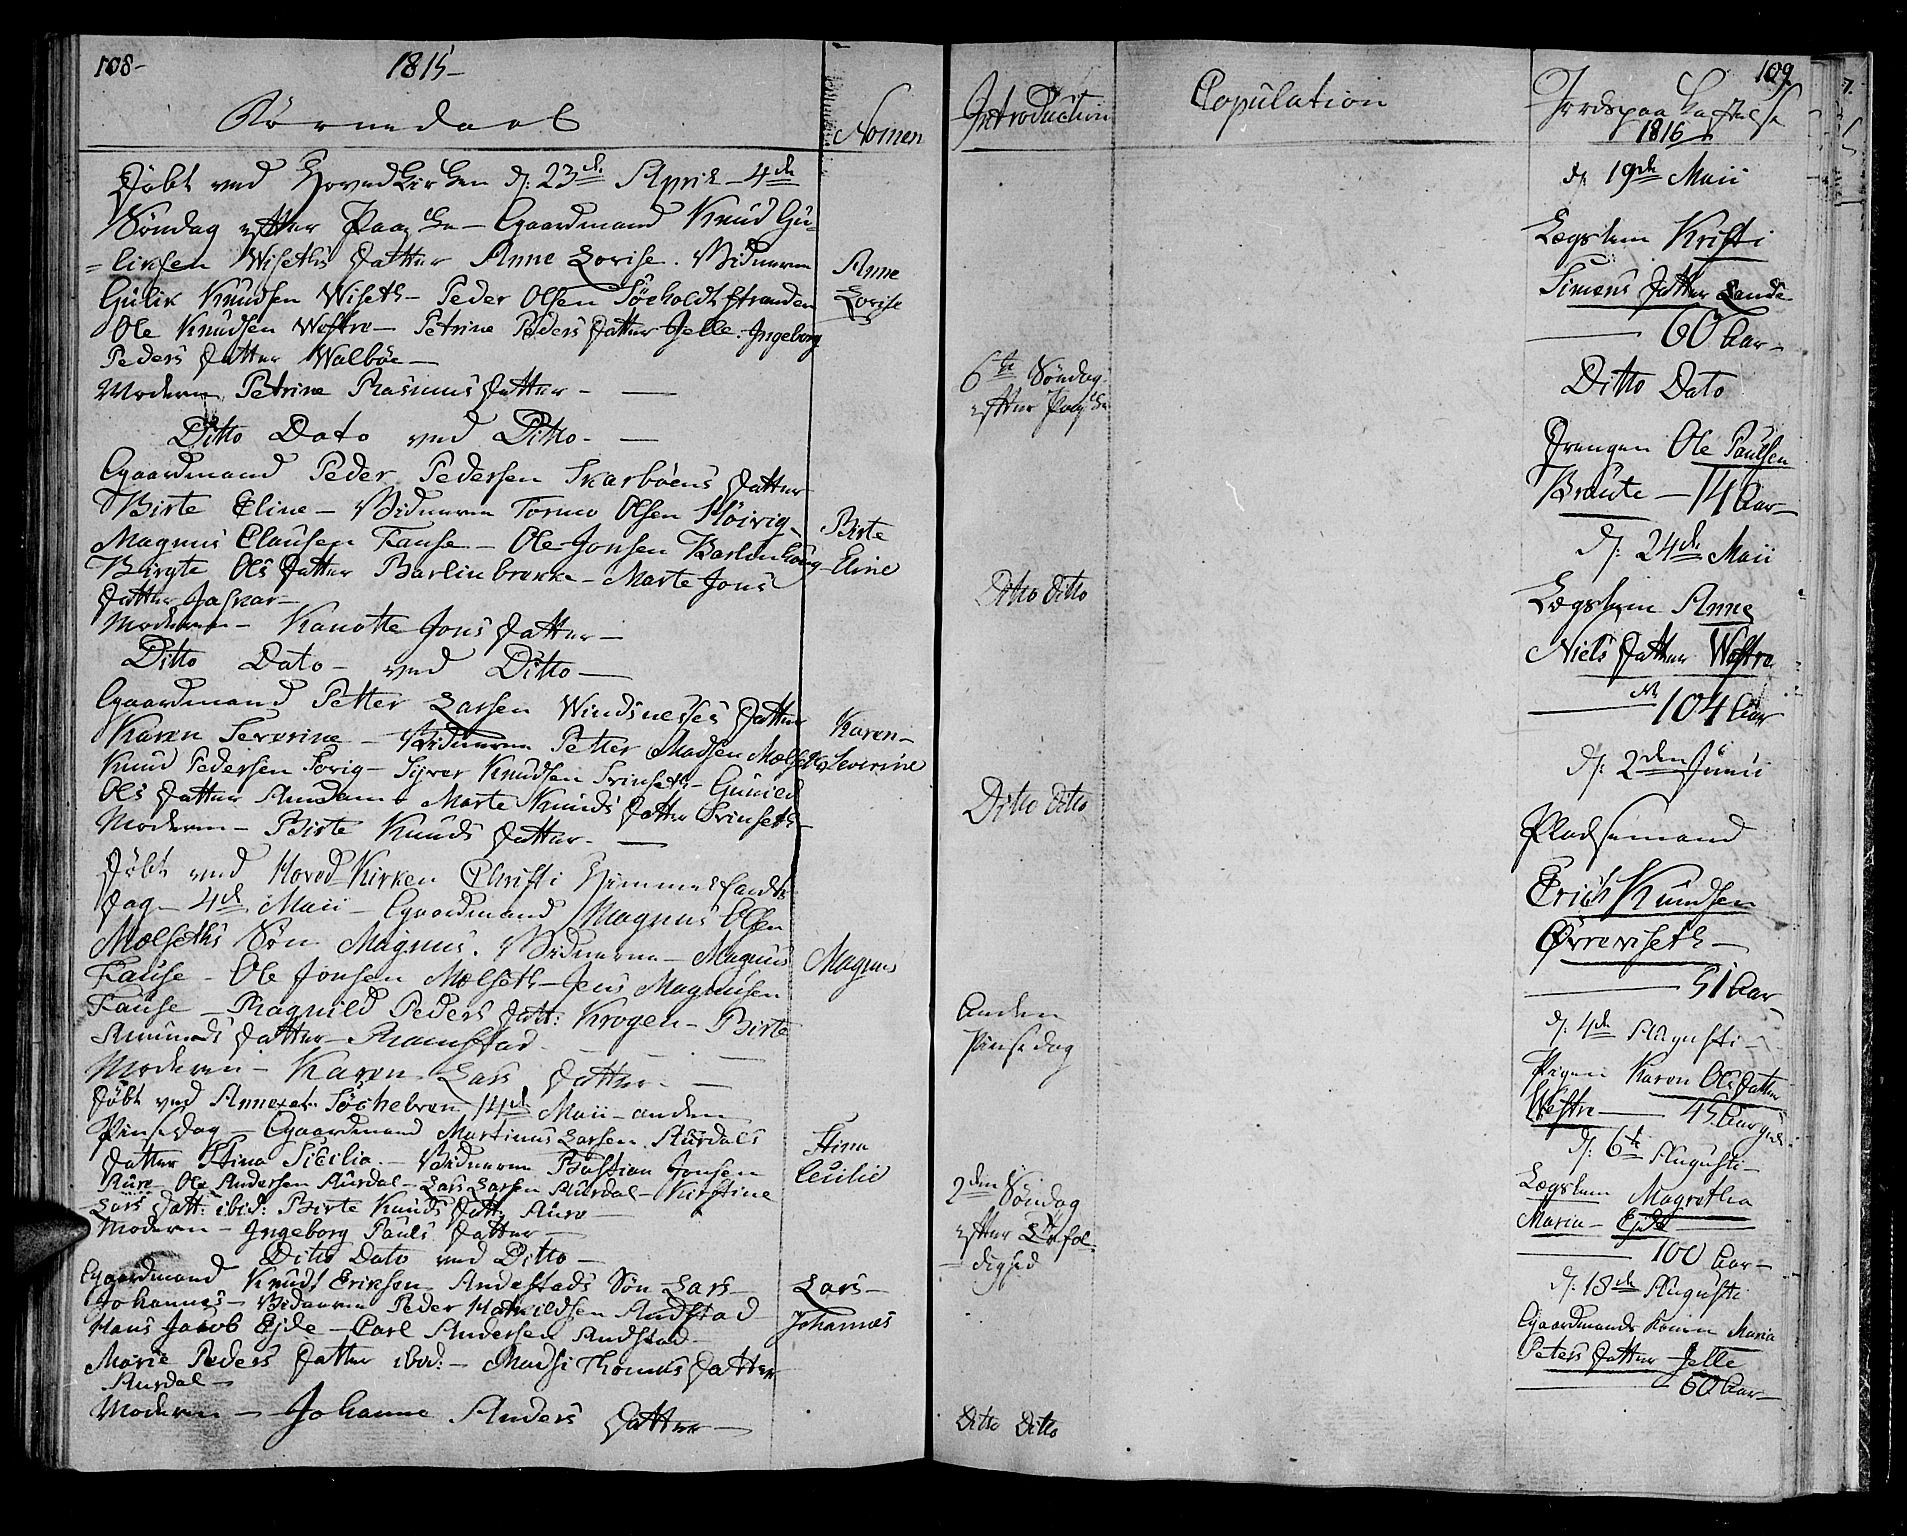 108-
1815-
Børnedaab
Nomen
Døbt ved Hovedkirken d: 23de April - 4de
Søndag efter Paaske - Gaardmand Knud Gu-
= liksen Wiseths Datter Anne Lovise. Vidnerne
Gulik Knudsen Wiseth - Peder Olsen Søeholdtstranden
Ole Knudsen Westre - Petrine Peders Datter Jelle. Ingeborg
Peders Datter Walbøe -
Moderen Petrine Rasmus Datter -
Anne
Lovise
Ditto Dato ved Ditto -
Gaardmand Peder Pedersen Skarbøens Datter
Birte Eline - Vidnerne Tormo Olsen Høivig -
Magnus Clausen Fause - Ole Jonsen Barlinhoug
Birgte Ols Datter Barlinbrække - Marte Jons
Datter
Moderen - Kanotte Jons Datter -
Birte
Eline
Ditto Dato - ved Ditto -
Gaardmand Petter Larsen Windsnesses Datter
Karen Severine - Vidnerne Petter Madsen Mælseth
Knud Pedersen Sovig - Syver Knudsen Svinseth - Gunild
Ols Datter Amdam - Marte Knuds Datter Svinseth -
Moderen - Birte Knuds Datter -
Karen -
Severine
Døbt ved Hoved Kirken Christi Himmelfarts
Dag - 4de Maii - Gaardmand Magnus Olsen
Mælseths Søn Magnus. Vidnerne - Magnus
Fause - Ole Jonsen Mælseth - Jens Magnusen
Fause - Ragnild Peders Datt: Krogen - Birte
Amunds Datter Ramstad -
Moderen - Karen Lars Datter -
Magnus
Døbt ved Annexet Søeholven 14de Maii - anden
Pinsedag - Gaardmand Martinus Larsen Aurdals
Datter Stina Sicilia - Vidnerne Bastian Jonsen
Aure - Ole Andersen Aurdal - Lars Larsen Aurdal - Kirstine
Lars Datt: ibid: Birte Knuds Datt: Aure -
Moderen - Ingeborg Pauls Datter -
Stina
Cecilie
Ditto Dato ved Ditto -
Gaardmand Knud Eriksen Andestads Søn Lars -
Johannes - Vidnerne Peder Andstad
Hans Jacob Ejde - Carl Andersen Andstad -
Marie Peders Datter ibid: - Madsi Thomas Datter
Aurdal -
Moderen - Johanne Anders Datter -
Lars -
Johannes
109
Introduction
Copulation
Jordspaakastelse
1816
6te Søndag
efter Paaske
Ditto Ditto
Ditto Ditto
Anden
Pinsedag
2den Søndag
efter Trefol-
- dighed
Ditto Ditto
d: 19de Maii
Lægslem Kristi
Simens Datter Lande
60 Aar -
Ditto Dato
Drengen Ole Paulsen
Braute - 14 Aar -
d: 24de Maii
Lægslem Anne
Niels Datter Westre
104 Aar
d: 2den Junii
Pladsemand
Erich Knudsen
Øvreviseth -
51 Aar
d: 4de Augusti -
Pigen Karen Ols Datter
Westre - 45 Aar
d: 6te Augusti -
Lægslem Magretha
Maria - Ejde
100 Aar -
d: 18de Augusti
Gaardmands Konen Maria
Peters Datter Jelle
60 Aar -